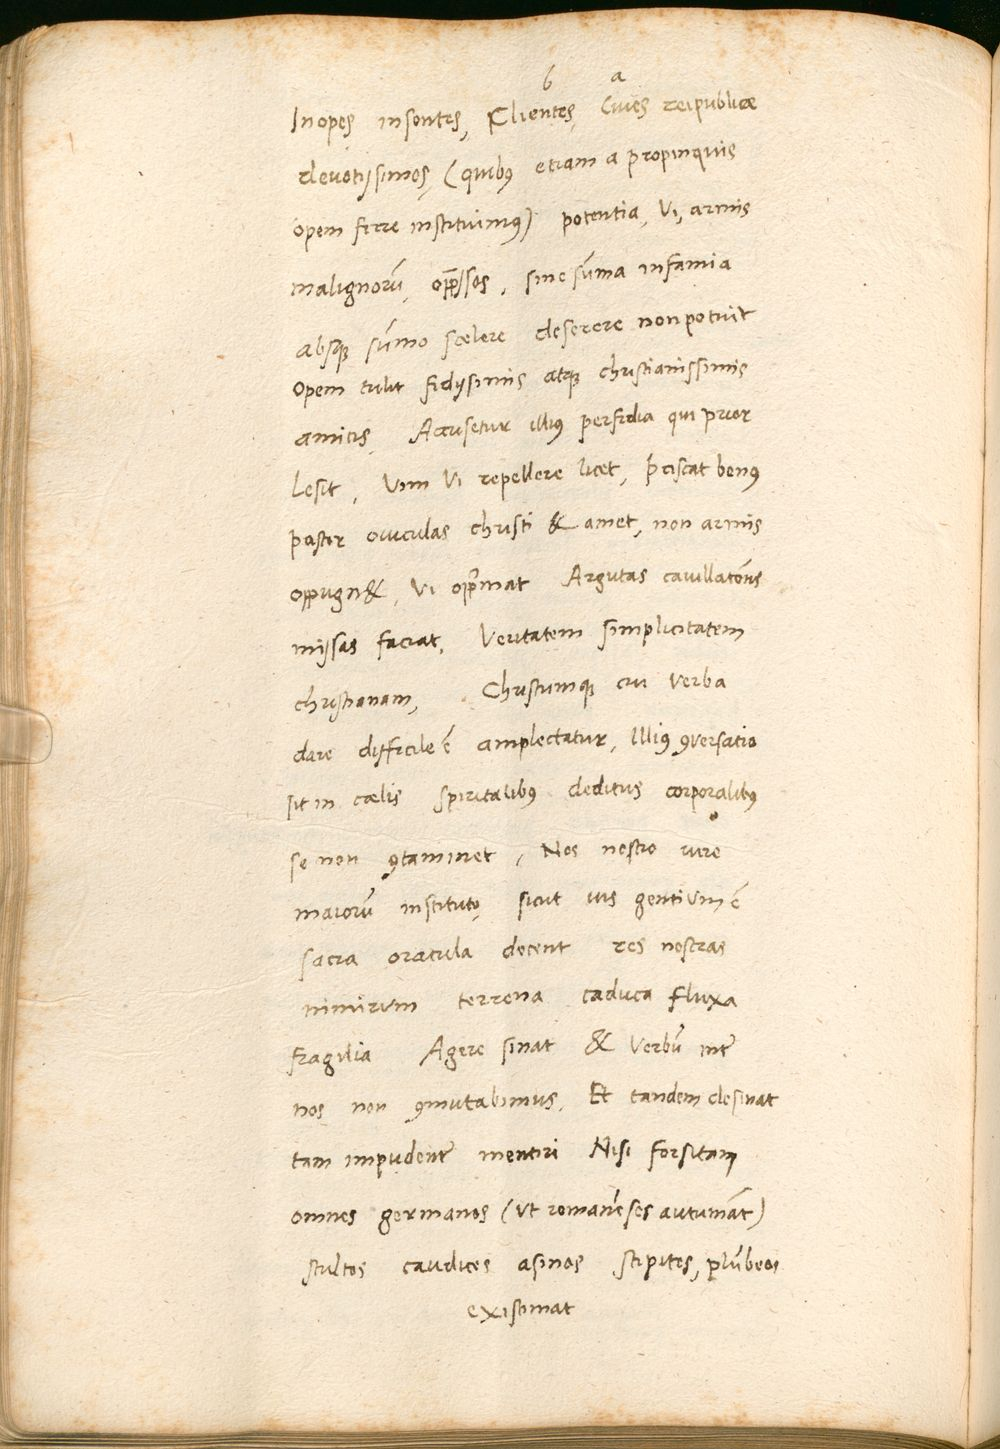 b a
Inopes insontes, Clientes, Cives reipublicæ
devotissimos, (quibus etiam a propinquis
opem ferre instituimus) potentia, vi, armis
malignorū, opp̄ssos, sine sūma infamia
absque sūmo scelere deserere non potuit
Opem tulit fidissimis atque christianissimis
amicis, Accusetur illius perfidia qui prior
Lesit, Vim vi repellere licet, pascat bonus
pastor oviculas christi & amet, non armis
oppugn&, vi opp̄mat Argutas cavillatōnes
missas faciat, Veritatem simplicitatem
christianam, Christumque cui verba
dare difficile ē amplectatur, Illius ꝯversatio
sit in cælis spiritalibus deditus corporalibus
se non ꝯtaminet, Nos nostro iure
maiorū instituto, sicut ius gentium ē
sacra oracula docent res nostras
nimirum terrena caduca fluxa
fragilia Agere sinat & verbū int̄
nos non ꝯmutabimus, Et tandem desinat
tam impudent̄ mentiri Nisi forsitam
omnes germanos (ut romanēses autumāt)
stultos caudices asinos stipites, plūbeos
existimat